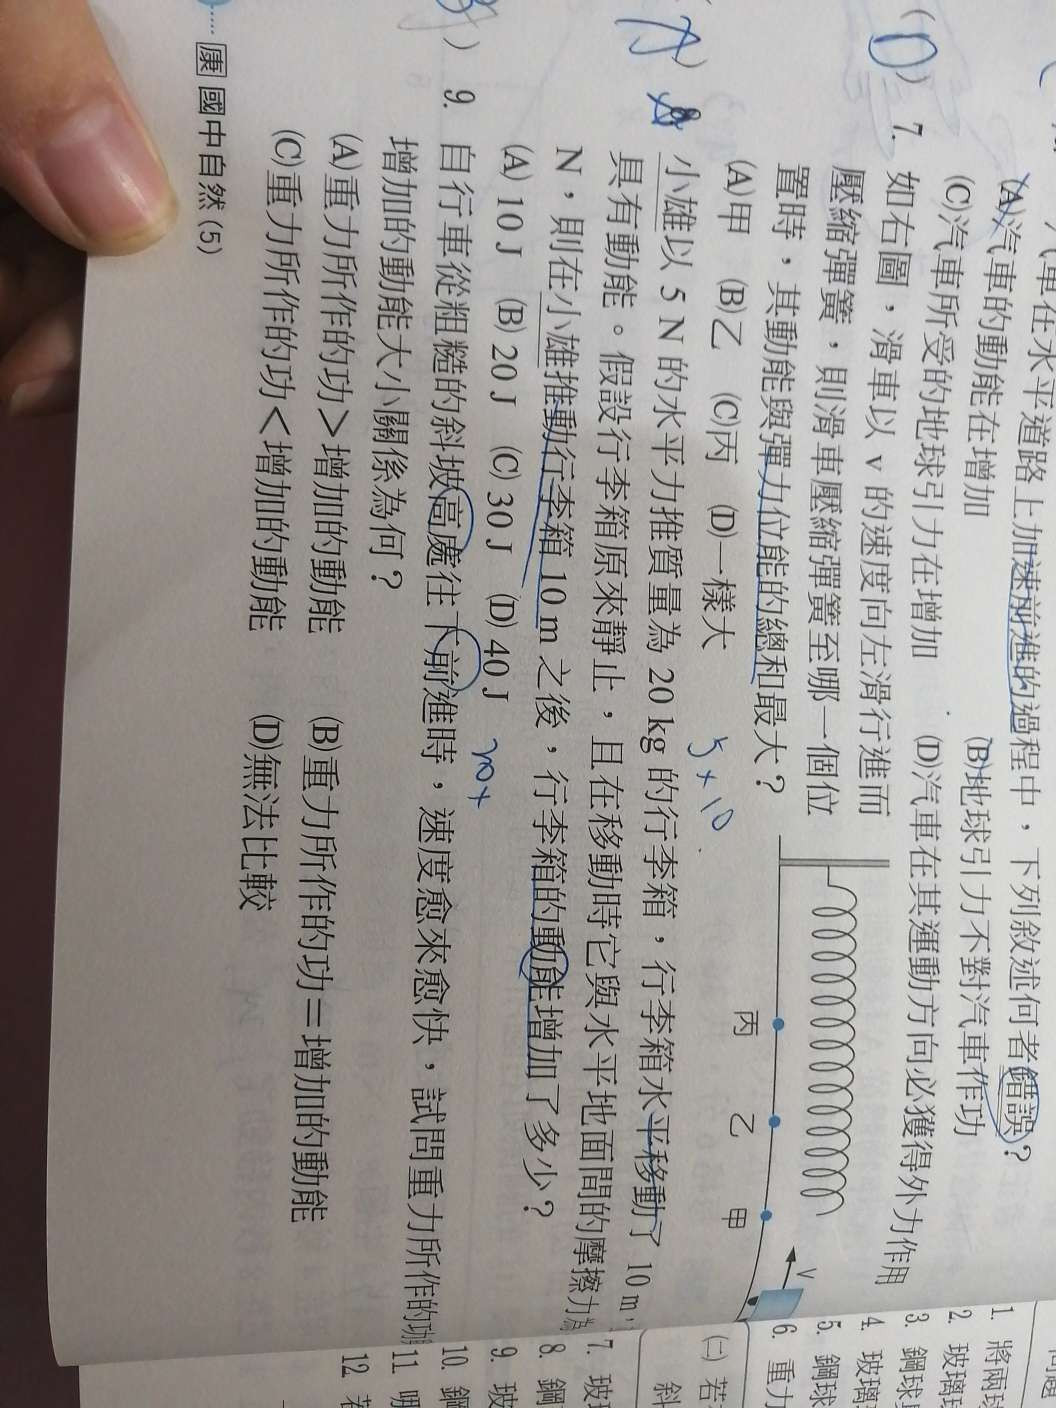 汽車在水平道路上加速前進的過程中，下列敘述何者錯誤？
(A)汽車的動能在增加 (B)地球引力不對汽車作功
(C)汽車所受的地球引力在增加 (D)汽車在其運動方向必獲得外力作用
(D) 7. 如右圖，滑車以 v 的速度向左滑行進而
壓縮彈簧，則滑車壓縮彈簧至哪一個位
置時，其動能與彈力位能的總和最大？
(A)甲 (B)乙 (C)丙 (D)一樣大
丙 乙 甲 v
5×10
(A) 8. 小雄以 5 N 的水平力推質量為 20 kg 的行李箱，行李箱水平移動了 10 m，
具有動能。假設行李箱原來靜止，且在移動時它與水平地面間的摩擦力為
N，則在小雄推動行李箱 10 m 之後，行李箱的動能增加了多少？
(A) 10 J (B) 20 J (C) 30 J (D) 40 J
20×
) 9. 自行車從粗糙的斜坡高處往下前進時，速度愈來愈快，試問重力所作的功
增加的動能大小關係為何？
(A)重力所作的功＞增加的動能 (B)重力所作的功＝增加的動能
(C)重力所作的功＜增加的動能 (D)無法比較
康 國中自然(5)
1. 將兩球
2. 玻璃球
3. 鋼球
4. 玻璃
5. 鋼球
6. 重力
(二) 若
斜
7. 玻
8. 鋼
9. 玻
10. 鋼
11
12 若